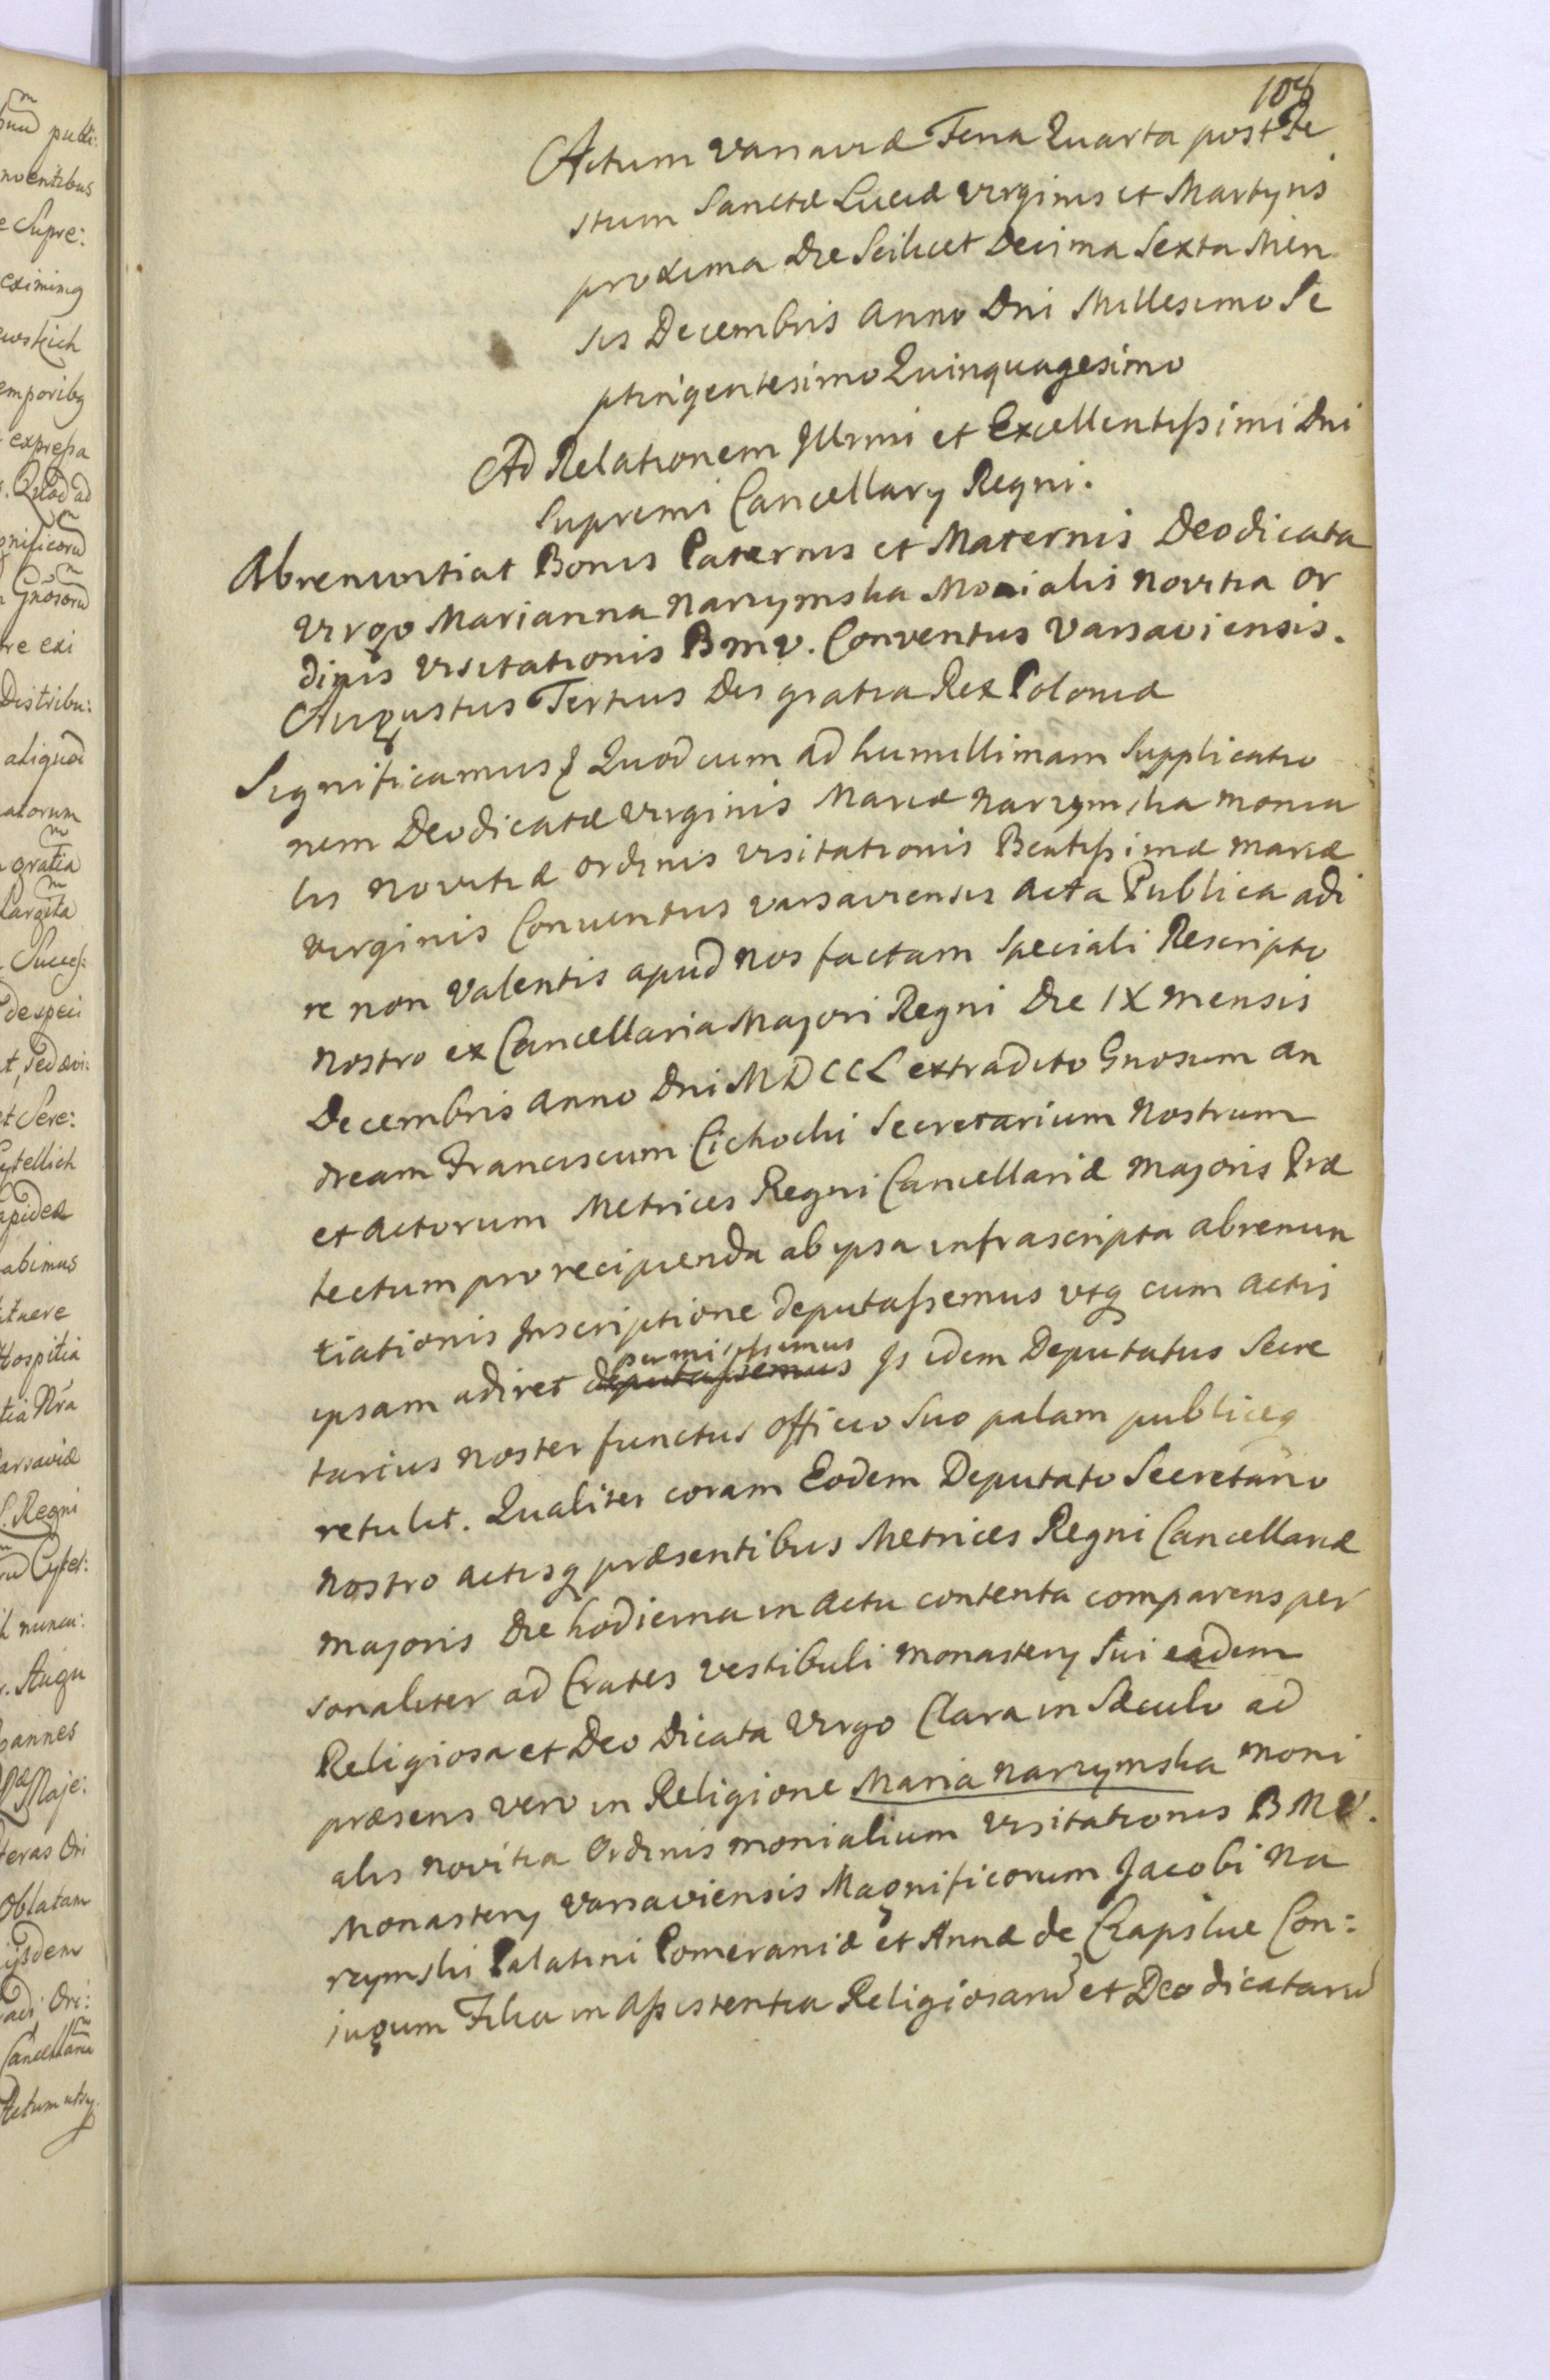 108
Actum Varsaviæ Feria Quarta post Fe
stum Sanctæ Luciæ Virginis et Martyris
proxima Die Scilicet Decima Sexta Men
sis Decembris Anno Dni Millesimo Se
ptingentesimo Quinquagesimo
Ad Relationem Illrmi et Excellentissimi Dni
Supremi Cancellary Regni.
Abrenuntiat Bonis Paternis et Maternis Deodicata
Virgo Marianna Narzymska Monialis Novitia Or
dinis Visitationis B M V. Conventus Varsaviensis.
Augustus Tertius Dei gratia Rex Poloniæ
Significamus Quod cum ad humillimam Supplicatio
nem Deodicatæ Virginis Mariæ Narzymska Monia
lis Novitiæ Ordinis Visitationis Beatissimæ Mariæ
Virginis Conventus Varsaviensis Acta Publica adi
re non Valentis apud Nos factam Speciali Rescripto
Nostro ex Cancellaria Majori Regni Die IX Mensis
Decembris Anno Dni MDCCL extradito Gnosum An
dream Franciscum Cichocki Secretarium Nostrum
et Actorum Metrices Regni Cancellariæ Majoris Præ
fectum pro recipienda ab ipsa infrascripta abrenun
tiationis Inscriptione deputassemus utq cum Actis
permisissemus
ipsam adiret deputassemus Is idem Deputatus Secre
tarius Noster functus officio Suo palam publiceq
retulit. Qualiter coram Eodem Deputato Secretario
Nostro Actisq præsentibus Metrices Regni Cancellariæ
Majoris Die hodierna in Actu contenta comparens per
sonaliter ad Crates Vestibuli Monastery Sui eadem
Religiosa et Deo Dicata Virgo Clara in Sæculo ad
præsens vero in Religione Maria Narzymska Moni
alis Novitia Ordinis Monialium Visitationis B M V.
Monastery Varsaviensis Magnificorum Jacobi Na
rzymski Palatini Pomeraniæ et Annæ de Czapskie Con:
jugum Filia in Assistentia Religiosaru et Deo dicataru